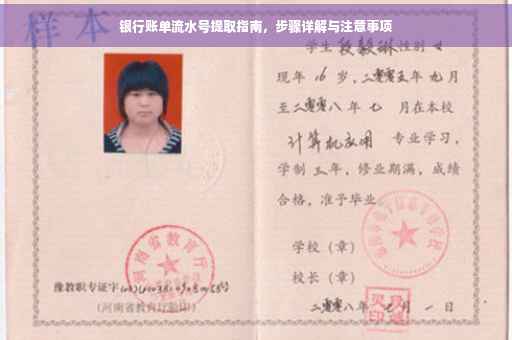 银行账单流水号提取指南，步骤详解与注意事项
样本
学生 段毅琳 性别 女
现年 16 岁，二零零五年 九 月
至二零零八 年 七 月在本校
计算机应用 专业学习，
学制 三 年，修业期满，成绩
合格，准予毕业
学校（章）
校长（章）
二零零八年 七 月 一 日
河南省教育厅
豫教职专证字
（河南省教育厅验印）